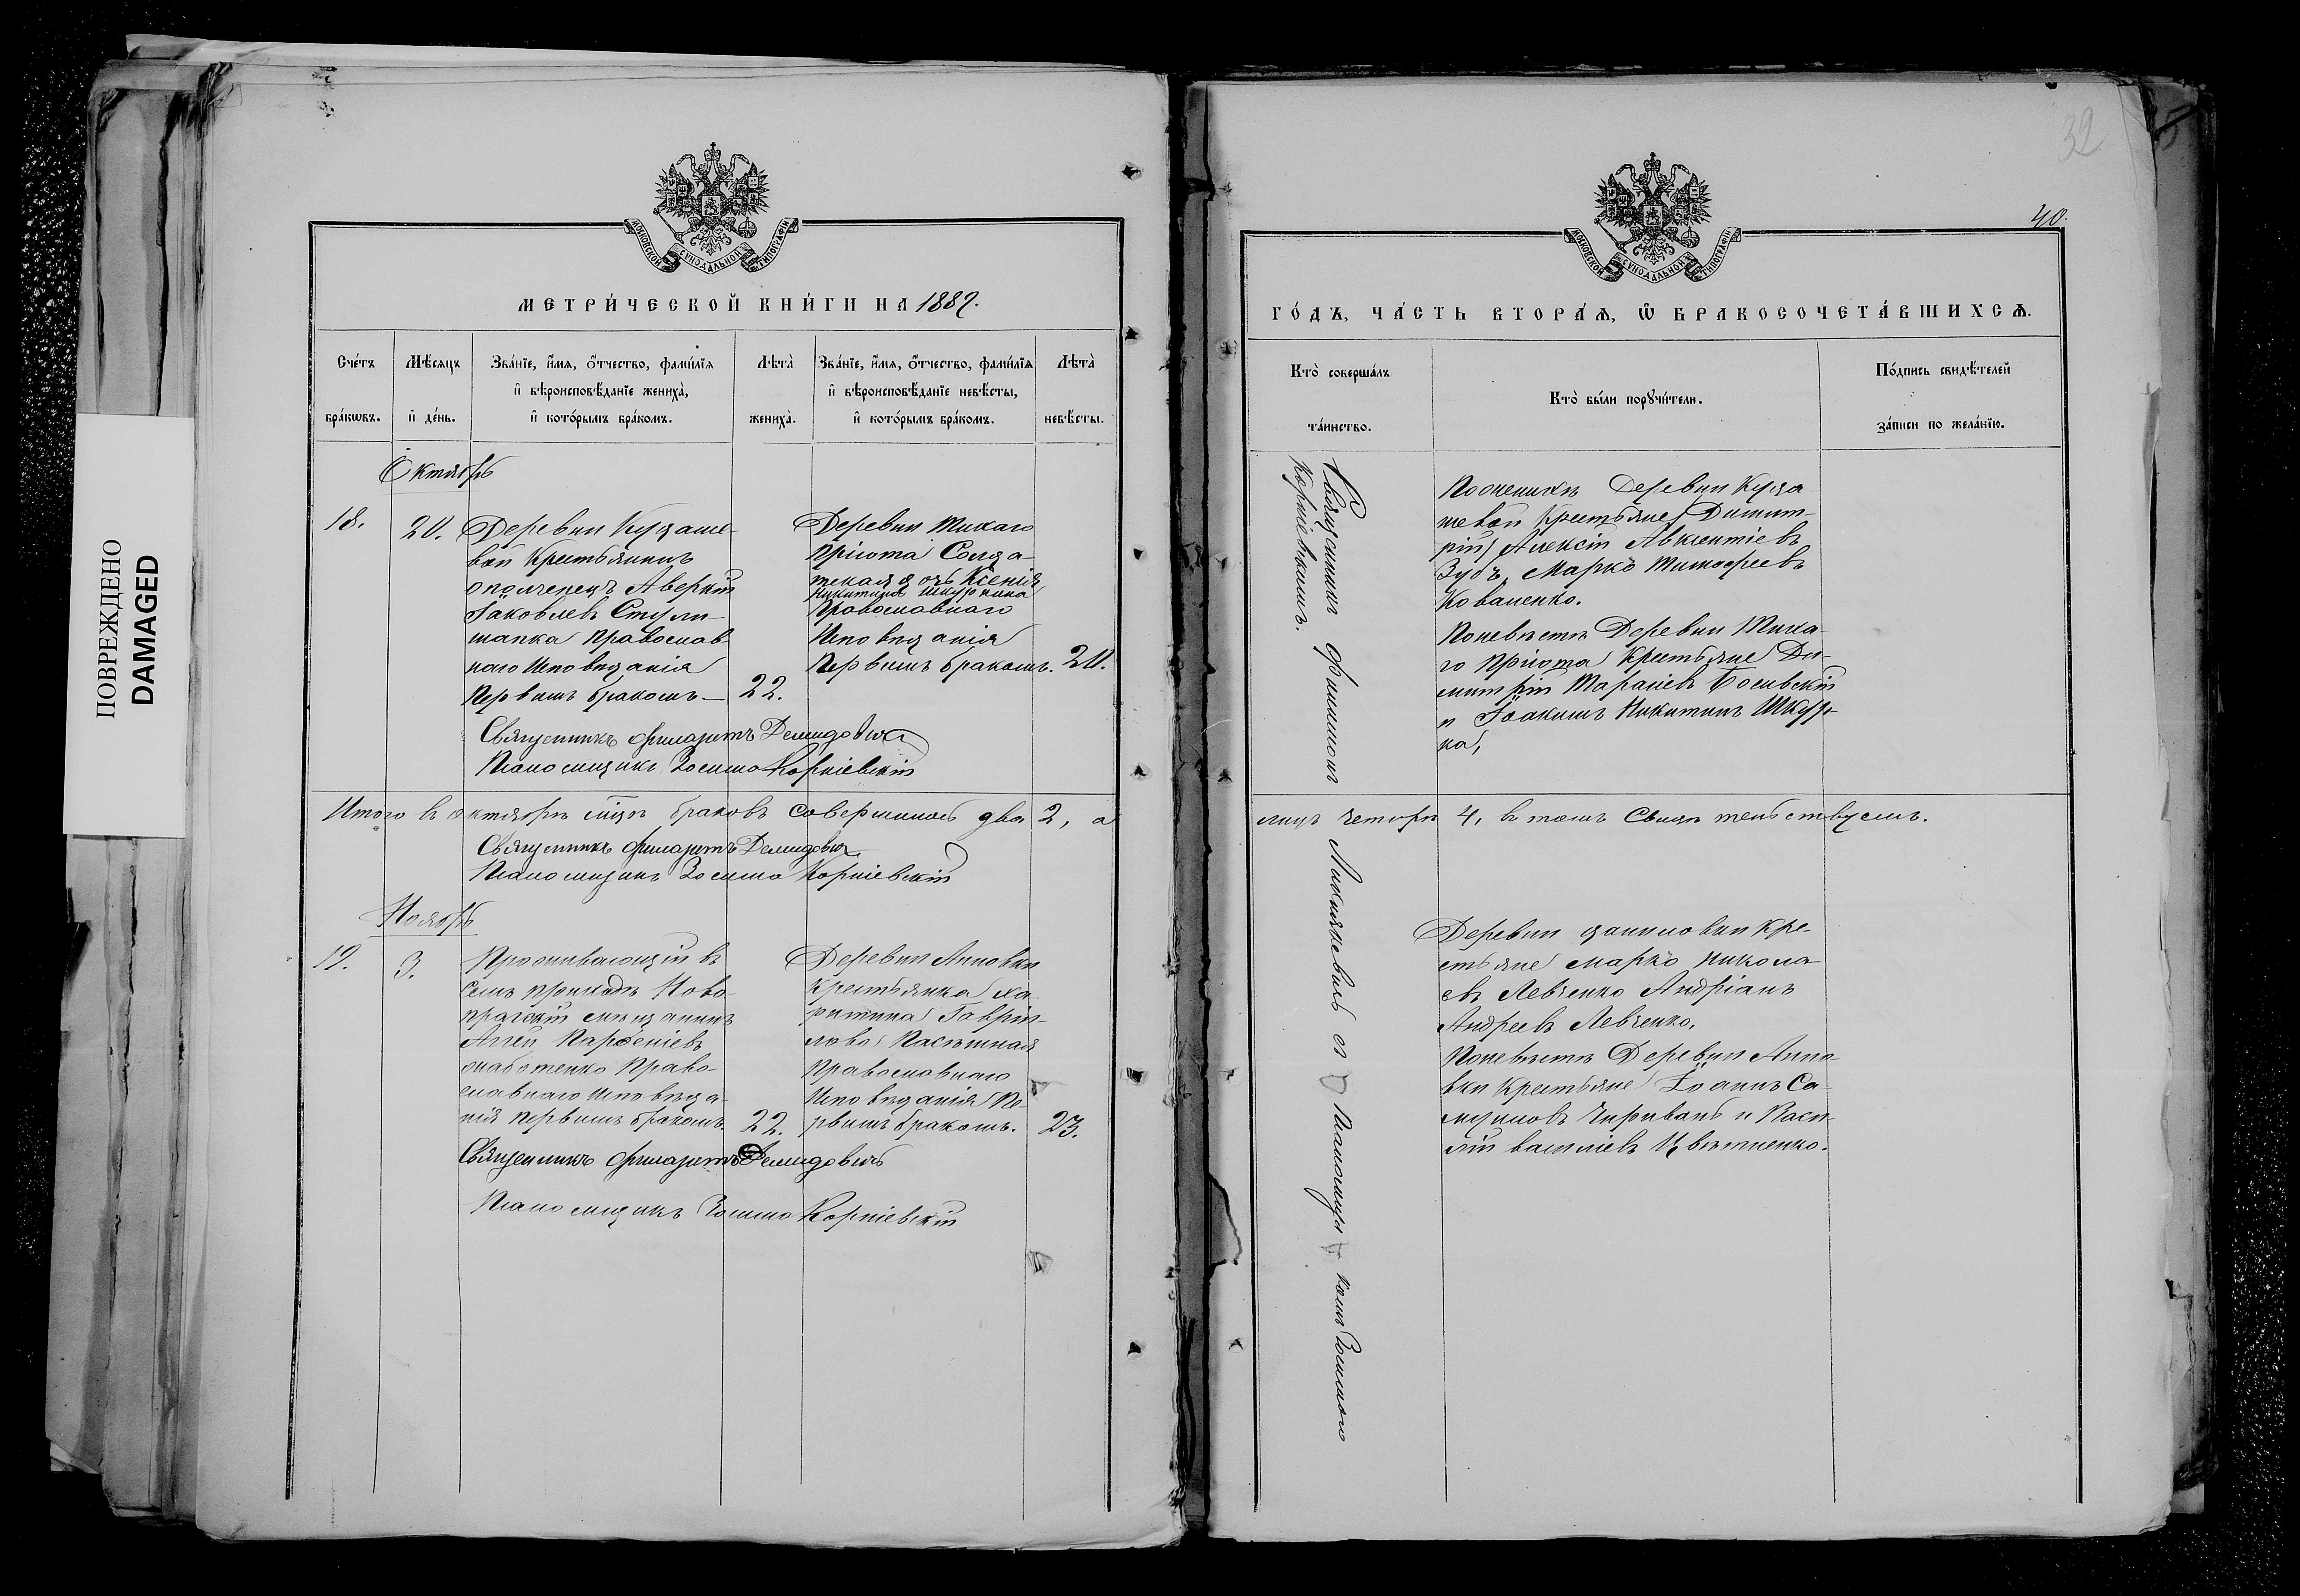 ПОВРЕЖДЕНО
DAMAGED
МОСКОВСКОЙ СѴНОДАЛЬНОЙ ТИПОГРАФІИ
МЕТРИ́ЧЕСКОЙ КНИ́ГИ НА 1887.
Сче́тъ бра́кѡвъ.
Мѣ́сяцъ и҆ де́нь.
Зва́нїе, и҆́мѧ, ѻ҆́тчество, фами́лїѧ
и҆ вѣроисповѣ́данїе жениха̀,
и҆ кото́рымъ бра́комъ.
Лѣта̀ жениха̀.
Зва́нїе, и҆́мѧ, ѻ҆́тчество, фами́лїѧ
и҆ вѣроисповѣ́данїе невѣ́сты,
и҆ кото́рымъ бра́комъ.
Лѣта̀ невѣ́сты.
Октябрь
18.
20.
Деревни Кудаше-
вой Крестьянинъ
ополченецъ Аверкій
Іаковлевъ Стули-
шапка Православ
наго Исповѣданія
Первымъ бракомъ
22.
Деревни Тихаго
Пріюта Солда-
тская дочь Ксенія
Никитина Шкуркина
Православнаго
Исповѣданія
Первымъ бракомъ.
20.
Священникъ Филаретъ Демидовичъ
Псаломщикъ Зосима Корніевскій
Итого въ октябрѣ мцѣ браковъ совершилось два 2, а
Священникъ Филаретъ Демидовичъ
Псаломщикъ Зосима Корніевскій
Ноябрь
19.
3.
Проживающій въ
семъ приходѣ Ново-
прагскій мѣщанинъ
Парѳеніевъ
Право-
славнаго Исповѣда-
нія первымъ бракомъ.
22.
Деревни Анновки
Крестьянка Ха-
ритина Гаврі-
лова
Православнаго
Исповѣданія Пе-
рвымъ бракомъ.
23.
Священникъ Филаретъ Демидовичъ
Псаломщикъ Зосима Корніевскій
32
40.
МОСКОВСКОЙ СѴНОДАЛЬНОЙ ТИПОГРАФІИ
ГО́ДЪ, ЧА́СТЬ ВТОРА́Ѧ, Ѡ҆ БРАКОСОЧЕТА́ВШИХСѦ.
Кто̀ соверша́лъ та́инство.
Кто̀ бы́ли порꙋчи́тели.
По́дпись свидѣ́телей
за́писи по жела́нїю.
Священникъ Филимонъ съ Псаломщикомъ Зосимою
Корніевскимъ.
По женихѣ Деревни Куда
шевой Крестьяне Димит-
рій Алексій Авксентіевъ
Зубъ, Марко Тимофеевъ
Коваленко.
По невѣстѣ Деревни Тиха-
го Пріюта Крестьяне Ди-
митрій Тарасіевъ
и Іоакимъ Никитинъ Шкур-
ка,
лицъ четыре 4, въ томъ свидѣтельствуемъ.
Деревни Даниловки Кре-
стьяне Марко Никола-
евъ Левченко Андріанъ
Андреевъ Левченко.
По невѣстѣ Деревни Анно-
вки Крестьяне Іоаннъ Са-
муиловъ и Васи-
лій Василіевъ Цвѣтненко.